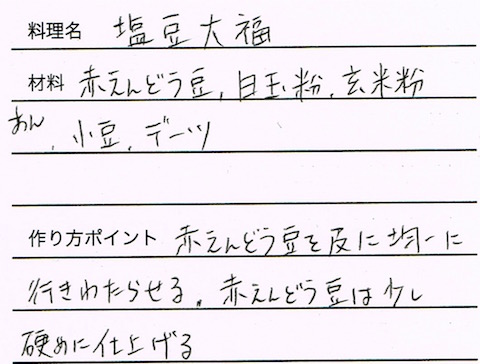 料理名 塩豆大福
材料 赤えんどう豆, 白玉粉, 玄米粉
あん, 小豆, デーツ
作り方ポイント 赤えんどう豆を皮に均一に
行きわたらせる。赤えんどう豆は少し
硬めに仕上げる